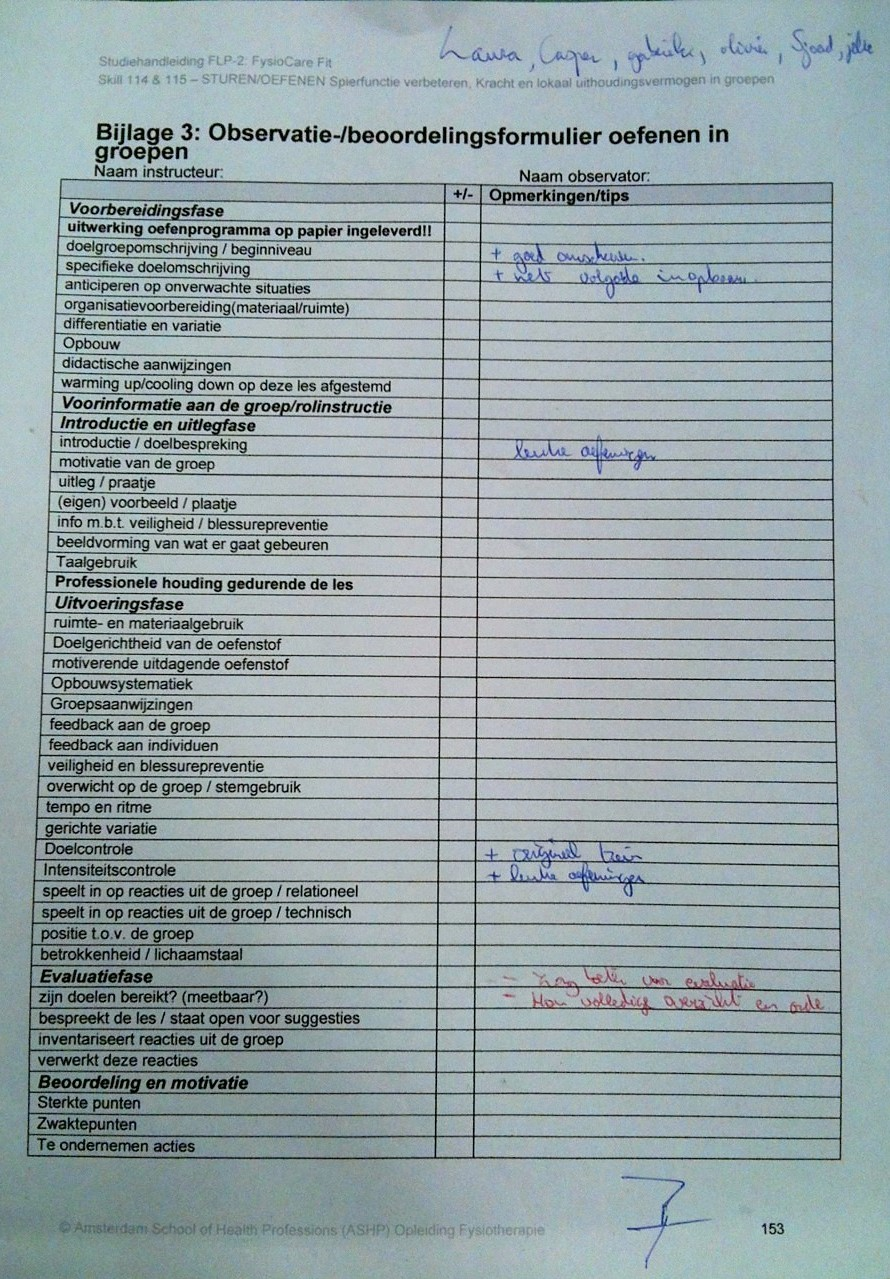 Laura, Casper, gabriela, olivier, Sjoad, jelle
Studiehandleiding FLP-2: FysioCare Fit
Skill 114 & 115 – STUREN/OEFENEN Spierfunctie verbeteren, Kracht en lokaal uithoudingsvermogen in groepen
Bijlage 3: Observatie-/beoordelingsformulier oefenen in
groepen
Naam instructeur: Naam observator:
+/- Opmerkingen/tips
Voorbereidingsfase
uitwerking oefenprogramma op papier ingeleverd!!
doelgroepomschrijving / beginniveau + goed omschreven.
specifieke doelomschrijving + volgorde in opbouw.
anticiperen op onverwachte situaties
organisatievoorbereiding(materiaal/ruimte)
differentiatie en variatie
Opbouw
didactische aanwijzingen
warming up/cooling down op deze les afgestemd
Voorinformatie aan de groep/rolinstructie
Introductie en uitlegfase
introductie / doelbespreking leuke oefeningen
motivatie van de groep
uitleg / praatje
(eigen) voorbeeld / plaatje
info m.b.t. veiligheid / blessurepreventie
beeldvorming van wat er gaat gebeuren
Taalgebruik
Professionele houding gedurende de les
Uitvoeringsfase
ruimte- en materiaalgebruik
Doelgerichtheid van de oefenstof
motiverende uitdagende oefenstof
Opbouwsystematiek
Groepsaanwijzingen
feedback aan de groep
feedback aan individuen
veiligheid en blessurepreventie
overwicht op de groep / stemgebruik
tempo en ritme
gerichte variatie
Doelcontrole + origineel
Intensiteitscontrole + leuke oefeningen
speelt in op reacties uit de groep / relationeel
speelt in op reacties uit de groep / technisch
positie t.o.v. de groep
betrokkenheid / lichaamstaal
Evaluatiefase - Zorg beter voor evaluatie
zijn doelen bereikt? (meetbaar?) - volledig overzicht en orde
bespreekt de les / staat open voor suggesties
inventariseert reacties uit de groep
verwerkt deze reacties
Beoordeling en motivatie
Sterkte punten
Zwaktepunten
Te ondernemen acties
7
© Amsterdam School of Health Professions (ASHP) Opleiding Fysiotherapie 153